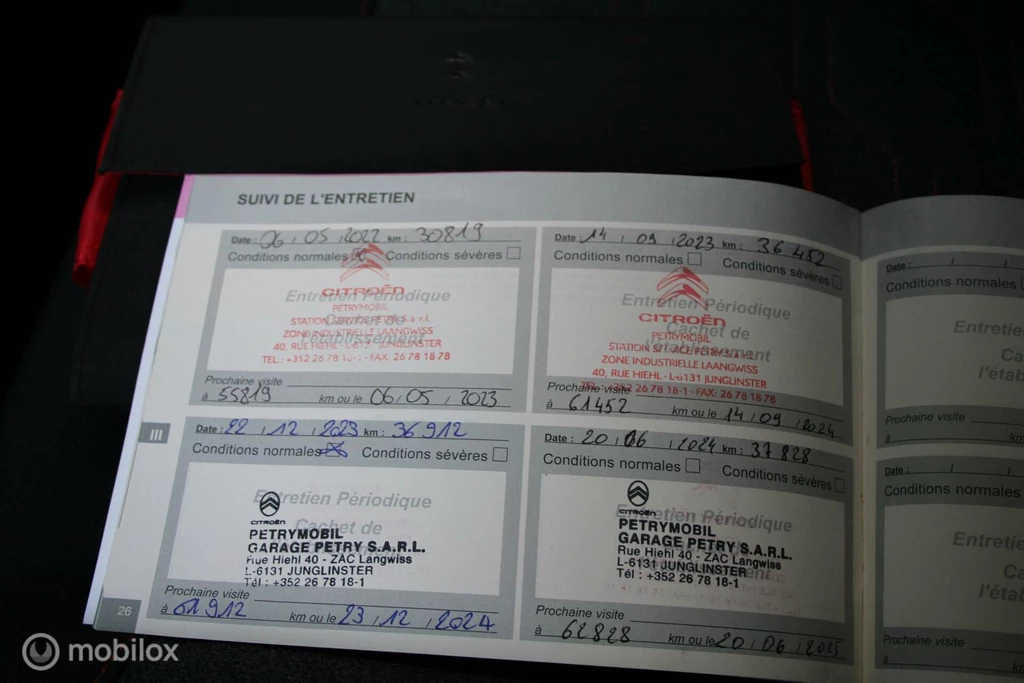 SUIVI DE L'ENTRETIEN
Date : 06 / 05 / 2022 km : 30819
Conditions normales Conditions sévères
Entretien Périodique
Cachet de
l'établissement
CITROËN
PETRYMOBIL
ZONE INDUSTRIELLE LAANGWISS
40, RUE HIEHL - L-6131 JUNGLINSTER
TEL.: +352 26 78 18-1 - FAX: 26 78 18 78
Prochaine visite
à 55819 km ou le 06 / 05 / 2023
Date : 14 / 09 / 2023 km : 36 452
Conditions normales Conditions sévères
Entretien Périodique
Cachet de
l'établissement
CITROËN
PETRYMOBIL
ZONE INDUSTRIELLE LAANGWISS
40, RUE HIEHL - L-6131 JUNGLINSTER
TEL.: +352 26 78 18-1 - FAX: 26 78 18 78
Prochaine visite
à 61452 km ou le 14 / 09 / 2024
Date : / /
Conditions normales
Entretie
Ca
l'étab
Prochaine visite
à km
III
Date : 22 / 12 / 2023 km : 36 912
Conditions normales Conditions sévères
Entretien Périodique
Cachet de
CITROËN
PETRYMOBIL
GARAGE PETRY S.A.R.L.
Rue Hiehl 40 - ZAC Langwiss
L-6131 JUNGLINSTER
Tél : +352 26 78 18-1
Prochaine visite
à 61912 km ou le 23 / 12 / 2024
Date : 20 / 06 / 2024 km : 37 828
Conditions normales Conditions sévères
Entretien Périodique
CITROËN
PETRYMOBIL
GARAGE PETRY S.A.R.L.
Rue Hiehl 40 - ZAC Langwiss
L-6131 JUNGLINSTER
Tél : +352 26 78 18-1
Prochaine visite
à 62828 km ou le 20 / 06 / 2025
Date : / /
Conditions normales
Entretie
Ca
l'étab
Prochaine visite
à km
26
mobilox